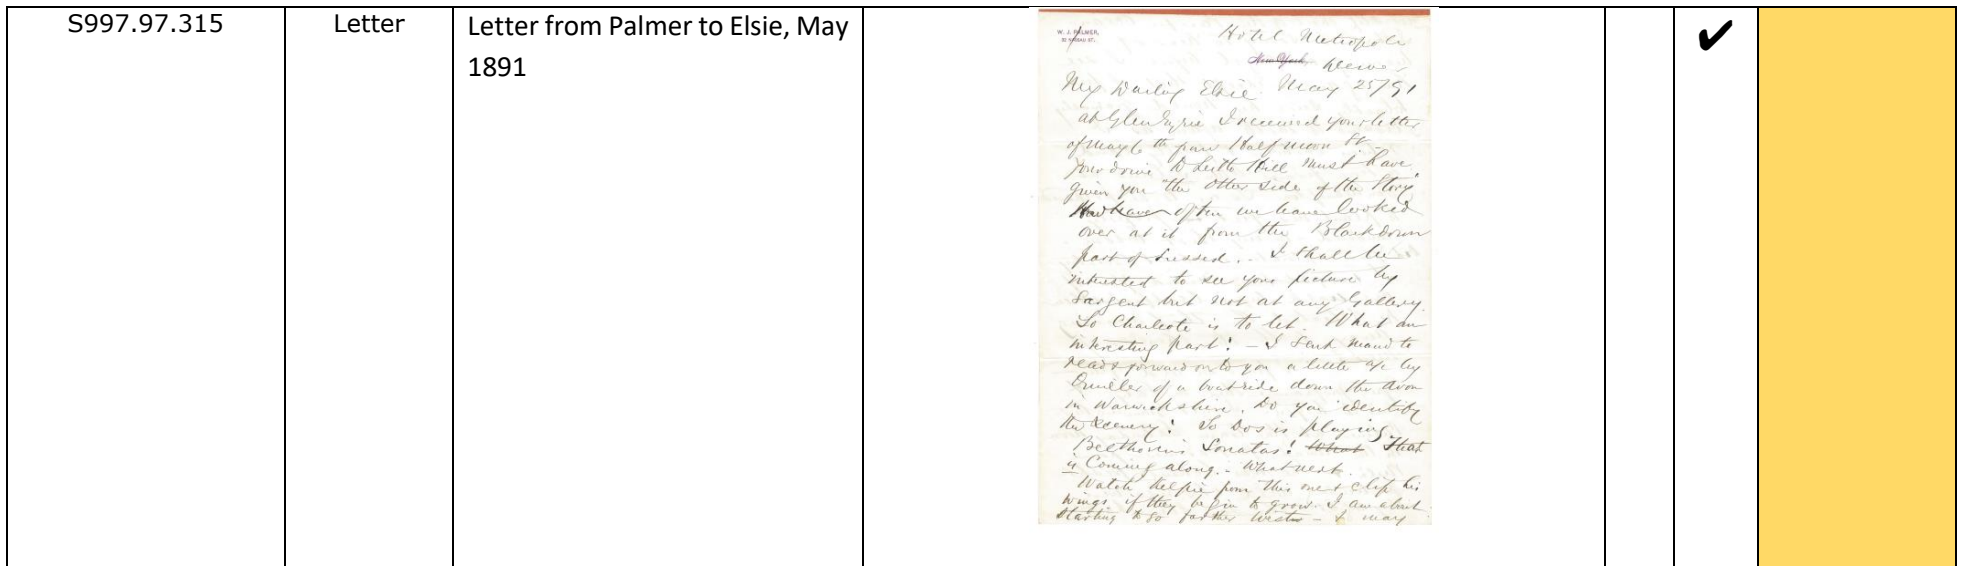 S997.97.315
Letter
Letter from Palmer to Elsie, May
1891
✔
W. J. PALMER,
52 NASSAU ST.
Hotel Metropole
New York,
May 25/91
My Darling Elsie
at Glen Eyrie I received your letter
of May 6th from Half moon St
Your drive to Leith Hill must have
given you "the other side of the Story"
often we have looked
over at it from the Blackdown
part of I shall be
interested to see your picture by
Sargent but not at any Gallery.
So Charlcote is to let. What an
interesting part! - I sent
forward on to you a little by
of a boat ride down the Avon
in Warwickshire. Do you identify
the Scenery? So Dos is playing
Beethoven's Sonatas! What That
is Coming along. - What next.
Watch from this on & clip his
wings if they begin to grow. I am about
starting to go farther - I may